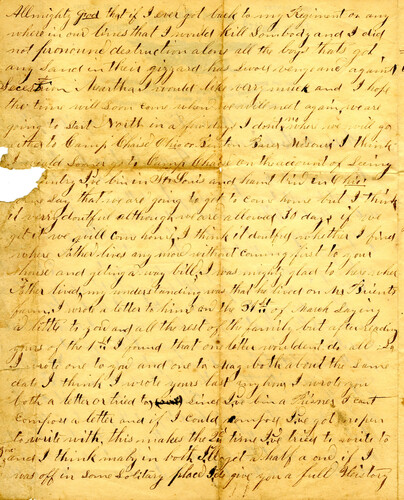 Allmighty God that if I ever got back to my Regiment or any
where in our Lines that I would kill Sombody and I did
not pronounce destruction alone all the boys thats got
any sand in their gizzard has swore vengance against
Secesstion Martha I would like verry much and I hope
the time will soon come when we will meet again we are
going to start North in a few days I dont no where we will go
either to Camp Chase Ohio or Benton Barrex Missouri I think
I would sooner go to Camp Chase on the account of Seeing
country I've bin in St Louis and haint bin in Ohio
Some say that we are going to got to come home but I think
it verry doutful although we are allowed 30 days if we
get it we will come home I think it doutful whether I find
where Father lives any more without coming first to your
house and geting a way bill I was mighty glad to here where
Father lived my understanding was that he lived on Mr
farm I wrote a letter to him on the 31st of March Saying
a letter to you and all the rest of the family but after
yours of the 1st I found that one letter wouldent do all So
I wrote one to you and one to both about the same
date I think I wrote yours last any how I wrote you
both a letter or tried to since I've bin a Prisner I cant
compose a letter and if I could compose I've got no pen
to write with, this makes the 2nd time I've tried to write to
and I think maby in both I'll got a half a one, if I
was off in some solitary place I'd give you a full History